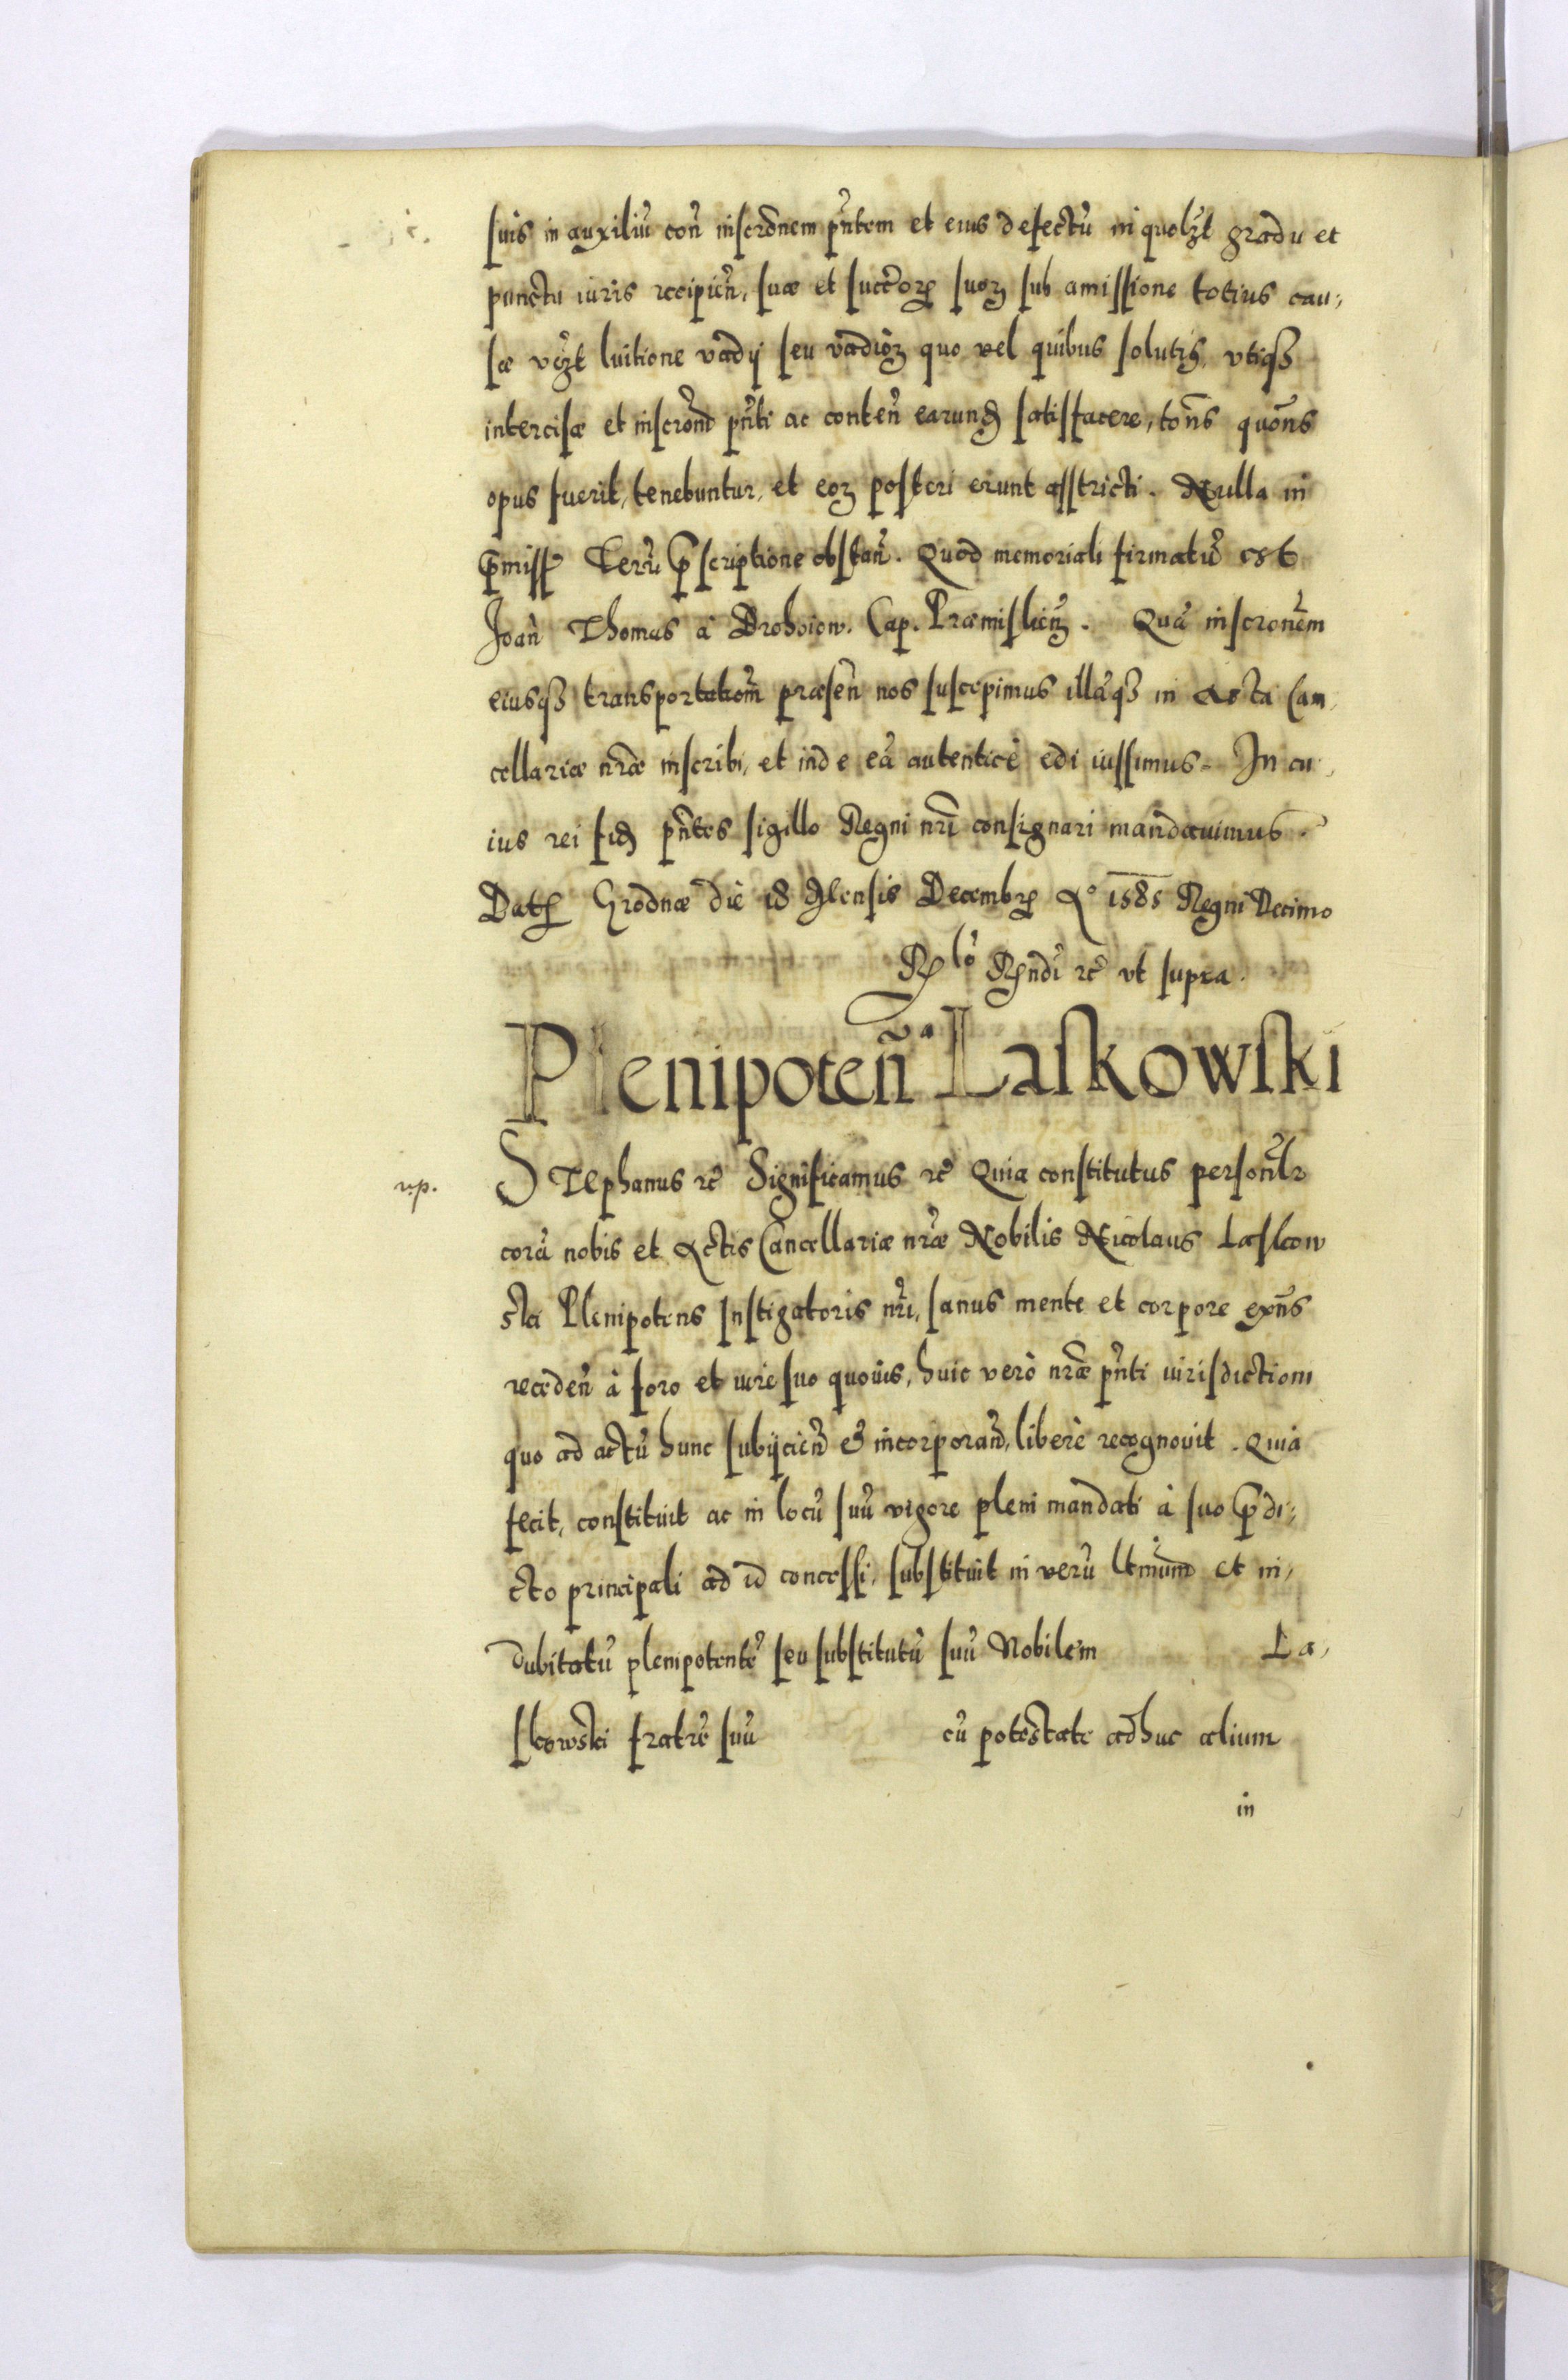 suis in auxiliũ coñ inscrõnem pñtem et eius defectũ in quolʒt gradu et
puncto iuris recipień, suæ et succorꝝ suoꝝ sub amissione totius cau,
sæ vʒt luitione vadij seu vadioꝝ quo vel quibus solutis, vtiqʒ
intercisæ et inscrõni pñti ac conteñ earundꝫ satisfacere, tõns quõns
opus fuerit, tenebuntur, et eoꝝ posteri erunt asstricti. Nulla in
p̃miss Terrũ p̃scriptione obstañ. Quod memoriali firmatũ est
Joañ Thomas à Drohoiow. Cap. Præmisliens. Quã inscronẽm
eiusqʒ transportationẽ præseñ nos suscepimus illãqʒ in Acta Can,
cellariæ nr̃æ inscribi, et inde eã autenticè edi iussimus. In cu,
ius rei fidꝫ pñtes sigillo Regni nr̃i consignari mandauimus.
Datꝫ Grodnæ die 18 Mensis Decembrꝫ A° 1585 Regni Decimo
Rꝫlõ Rꝫndi rc̃ vt supra.
Plenipoteñ Laskowski
va
rp.
STephanus rc̃ Significamus rc̃ Quia constitutus personl̃r
corã nobis et Actis Cancellariæ nr̃æ Nobilis Nicolaus Laskow
ski Plenipotens Instigatoris nr̃i, sanus mente et corpore exñs
recedeñ à foro et iure suo quouis, huic verò nr̃æ pñti iurisdictioni
quo ad actũ hunc subijcieñ & incorporañ, liberè recognouit. Quia
fecit, constituit ac in locũ suũ vigore pleni mandati à suo p̃di,
cto principali ad id concessi, substituit in verũ ltm̃um et in,
dubitatũ plenipotentẽ seu substitutũ suũ Nobilem La,
skowski fratrẽ suũ cũ potestate adhuc alium
in